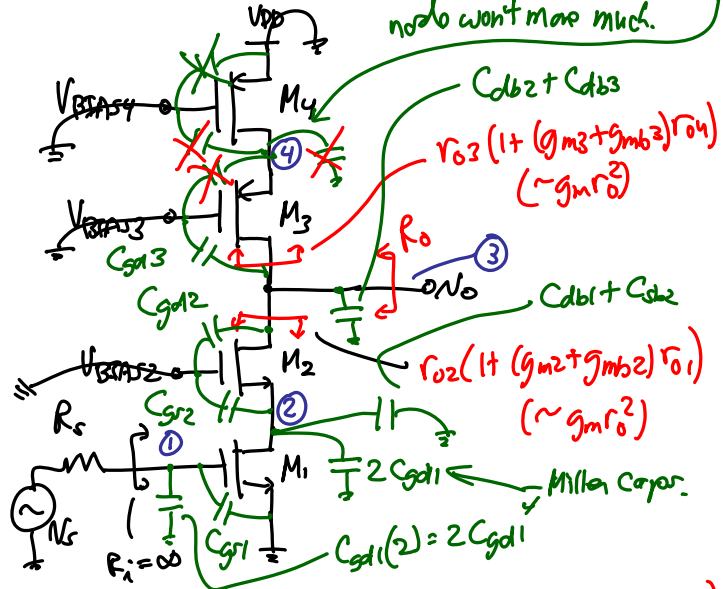 node won't move much.
VDD
VBIAS4
M4
Cdb2 + Cdb3
④
ro3 (1 + (gm3 + gmb3) ro4)
(~gmro²)
VBIAS3
M3
Cgd3
Ro
③
vo
Cgd2
Cdb1 + Csb2
VBIAS2
M2
ro2 (1 + (gm2 + gmb2) ro1)
(~gmro²)
Cgs2
②
Rs
①
M1
2Cgd1
Miller Capac.
vs
Ri = ∞
Cgs1
Cgd1(2) = 2Cgd1